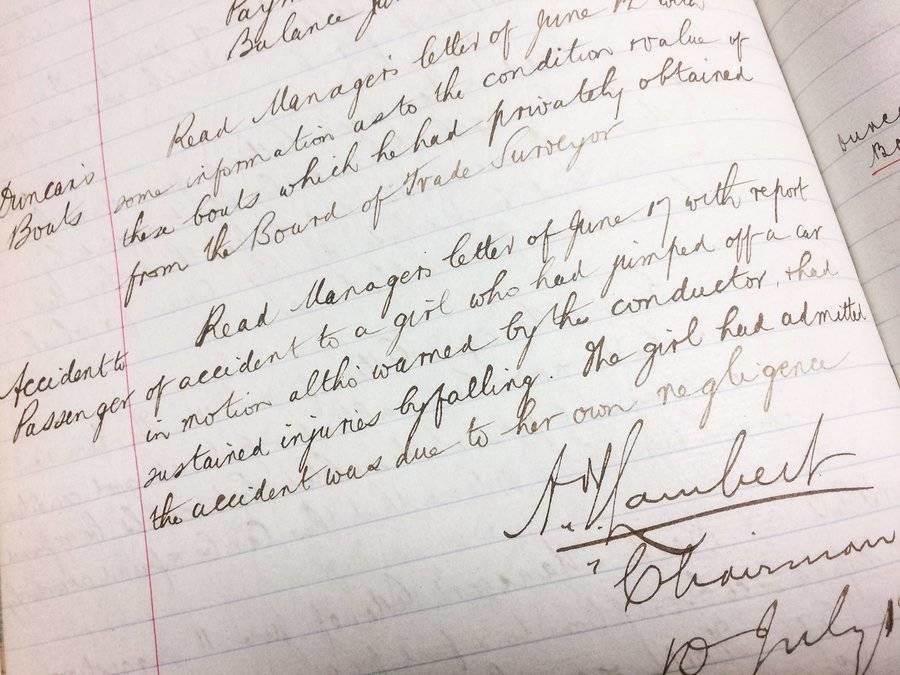 Balance
Read Manager's letter of June 12 with
Duncan's some information as to the condition & value of
Boats these boats which he had privately obtained
from the Board of Trade Surveyor
Read Manager's letter of June 17 with report
Accident to of accident to a girl who had jumped off a car
Passenger in motion altho' warned by the conductor, & had
sustained injuries by falling. The girl had admitted
the accident was due to her own negligence
Lambert
Chairman
10 July